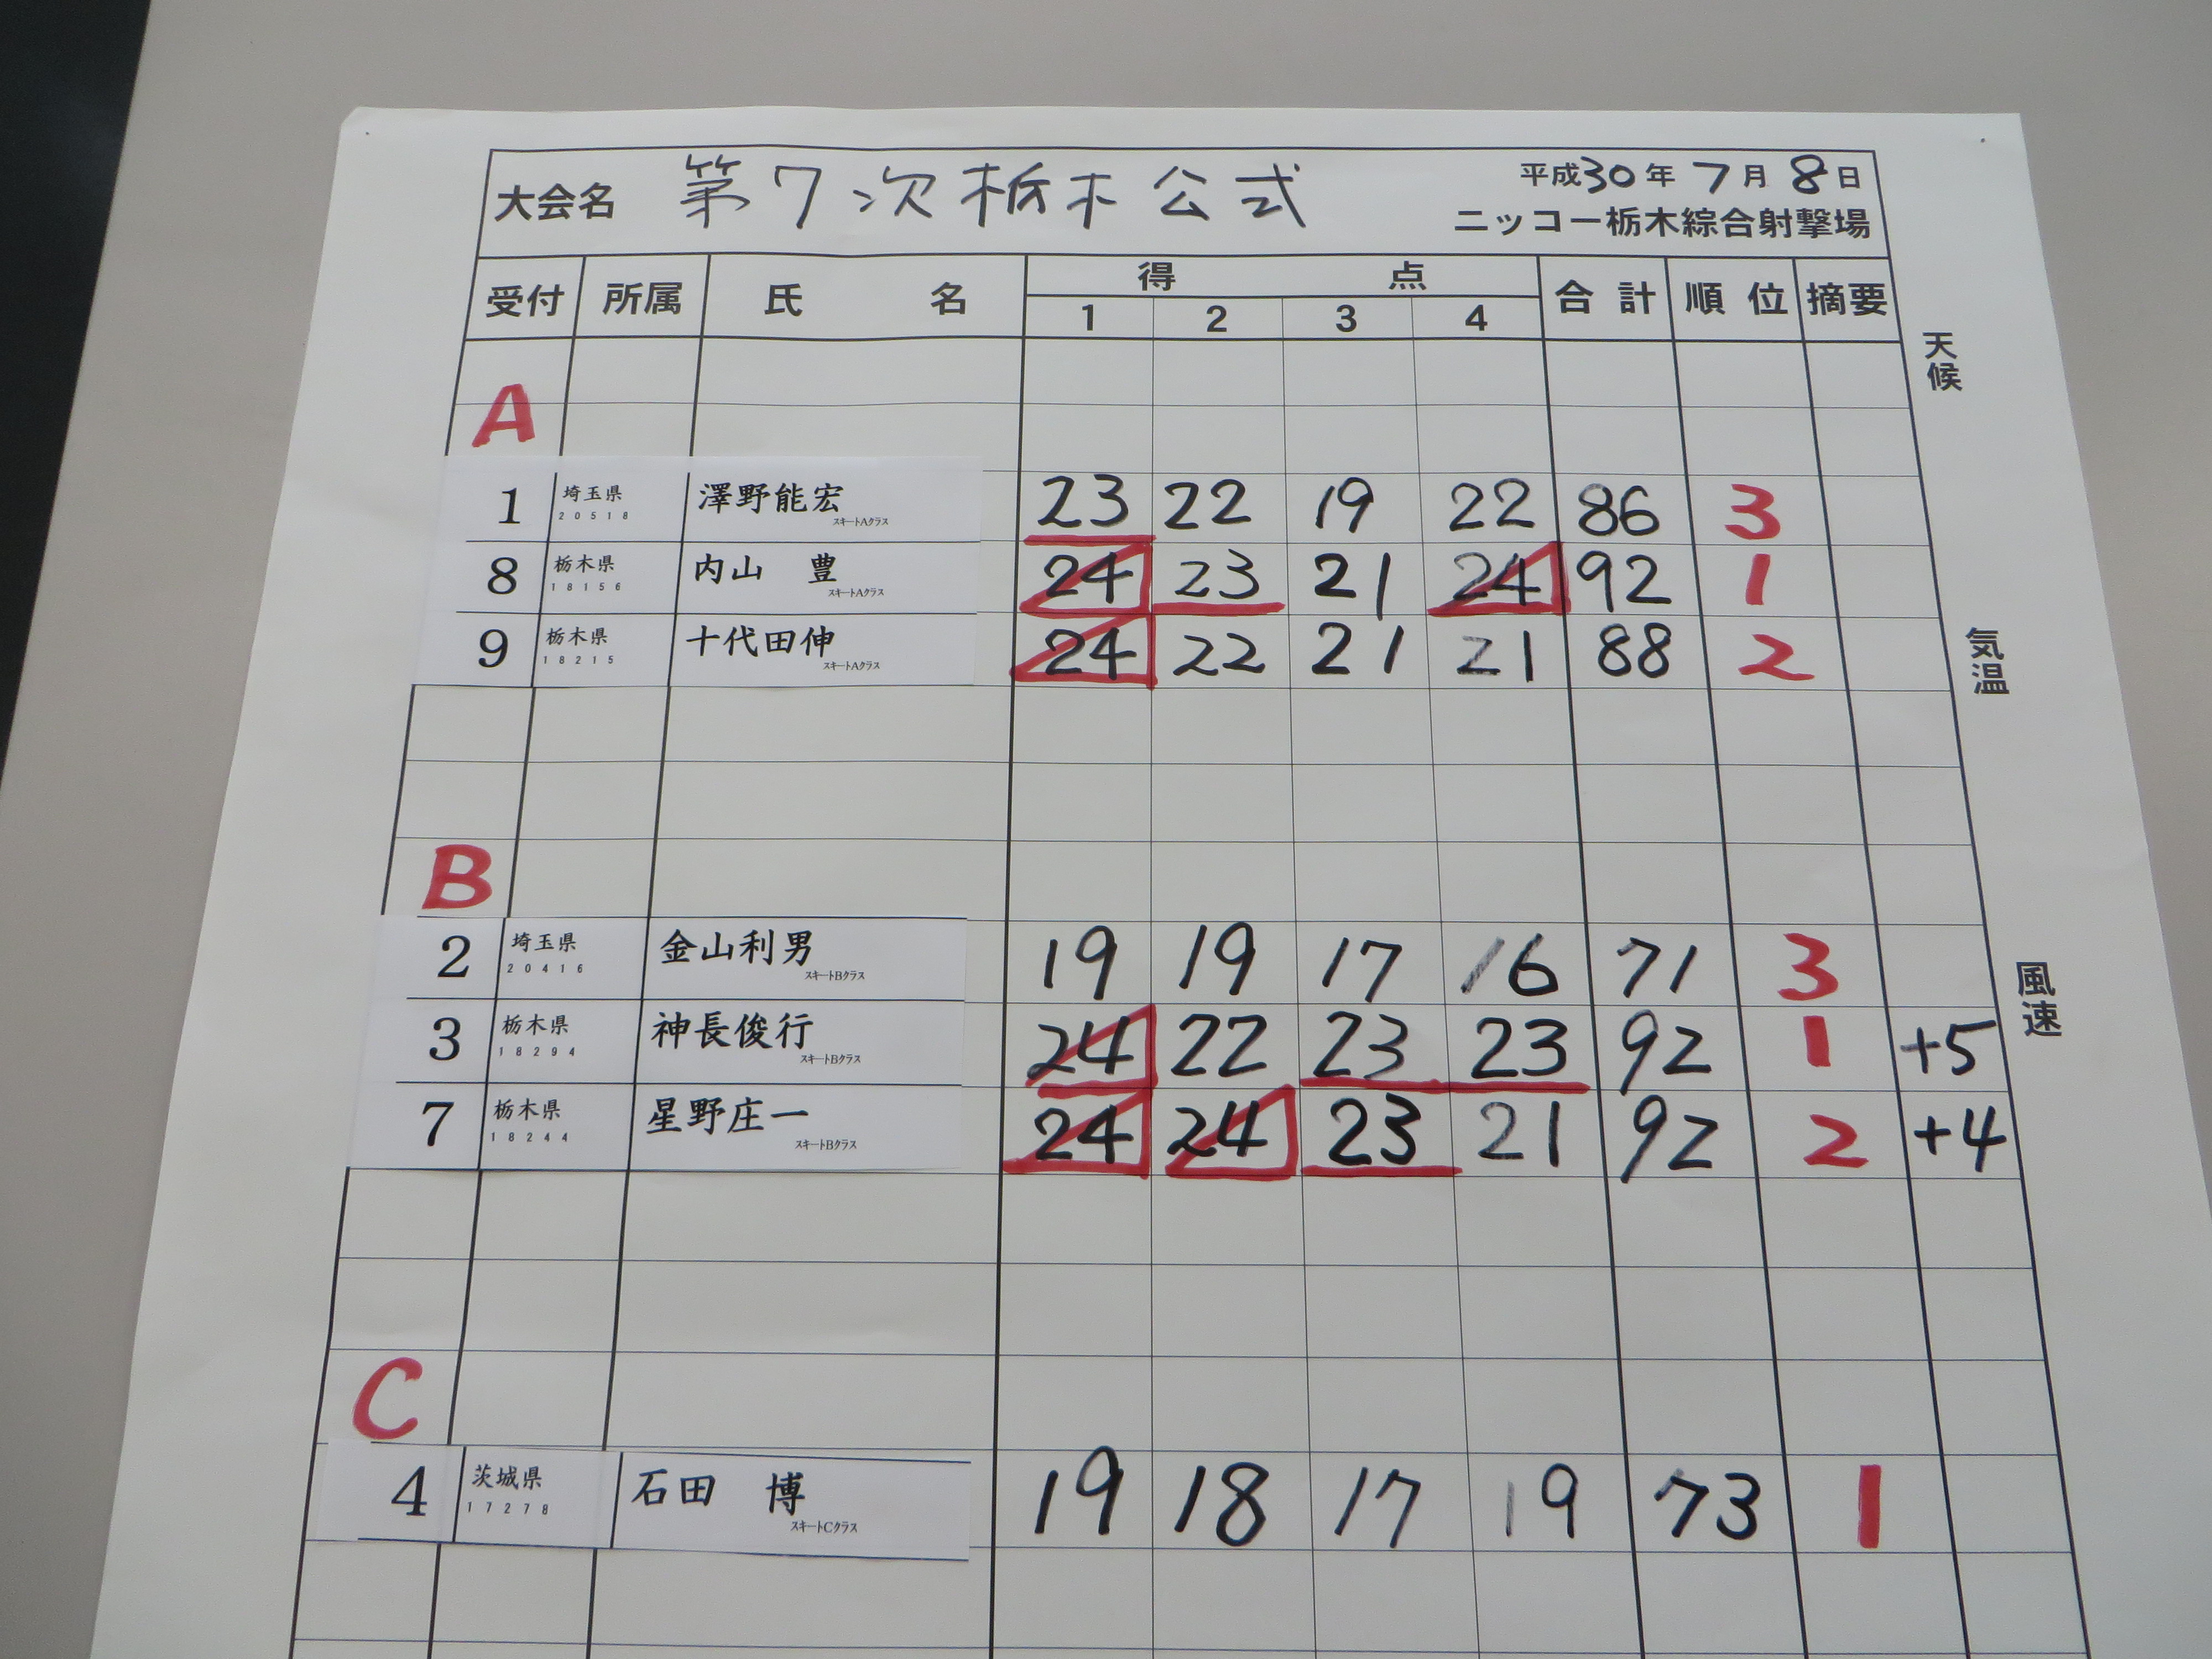 大会名 第7次栃木公式 平成30年7月8日
ニッコー栃木綜合射撃場
受付 所属 氏 名 得 点 合計 順位 摘要
1 2 3 4
天候
A
1 埼玉県 澤野能宏 23 22 19 22 86 3
20518 スキートAクラス
8 栃木県 内山 豊 24 23 21 24 92 1
18156 スキートAクラス
9 栃木県 十代田伸 24 22 21 21 88 2
18215 スキートAクラス
気温
B
2 埼玉県 金山利男 19 19 17 16 71 3
20416 スキートBクラス
風速
3 栃木県 神長俊行 24 22 23 23 92 1 +5
18294 スキートBクラス
7 栃木県 星野庄一 24 24 23 21 92 2 +4
18244 スキートBクラス
C
4 茨城県 石田 博 19 18 17 19 73 1
17278 スキートCクラス